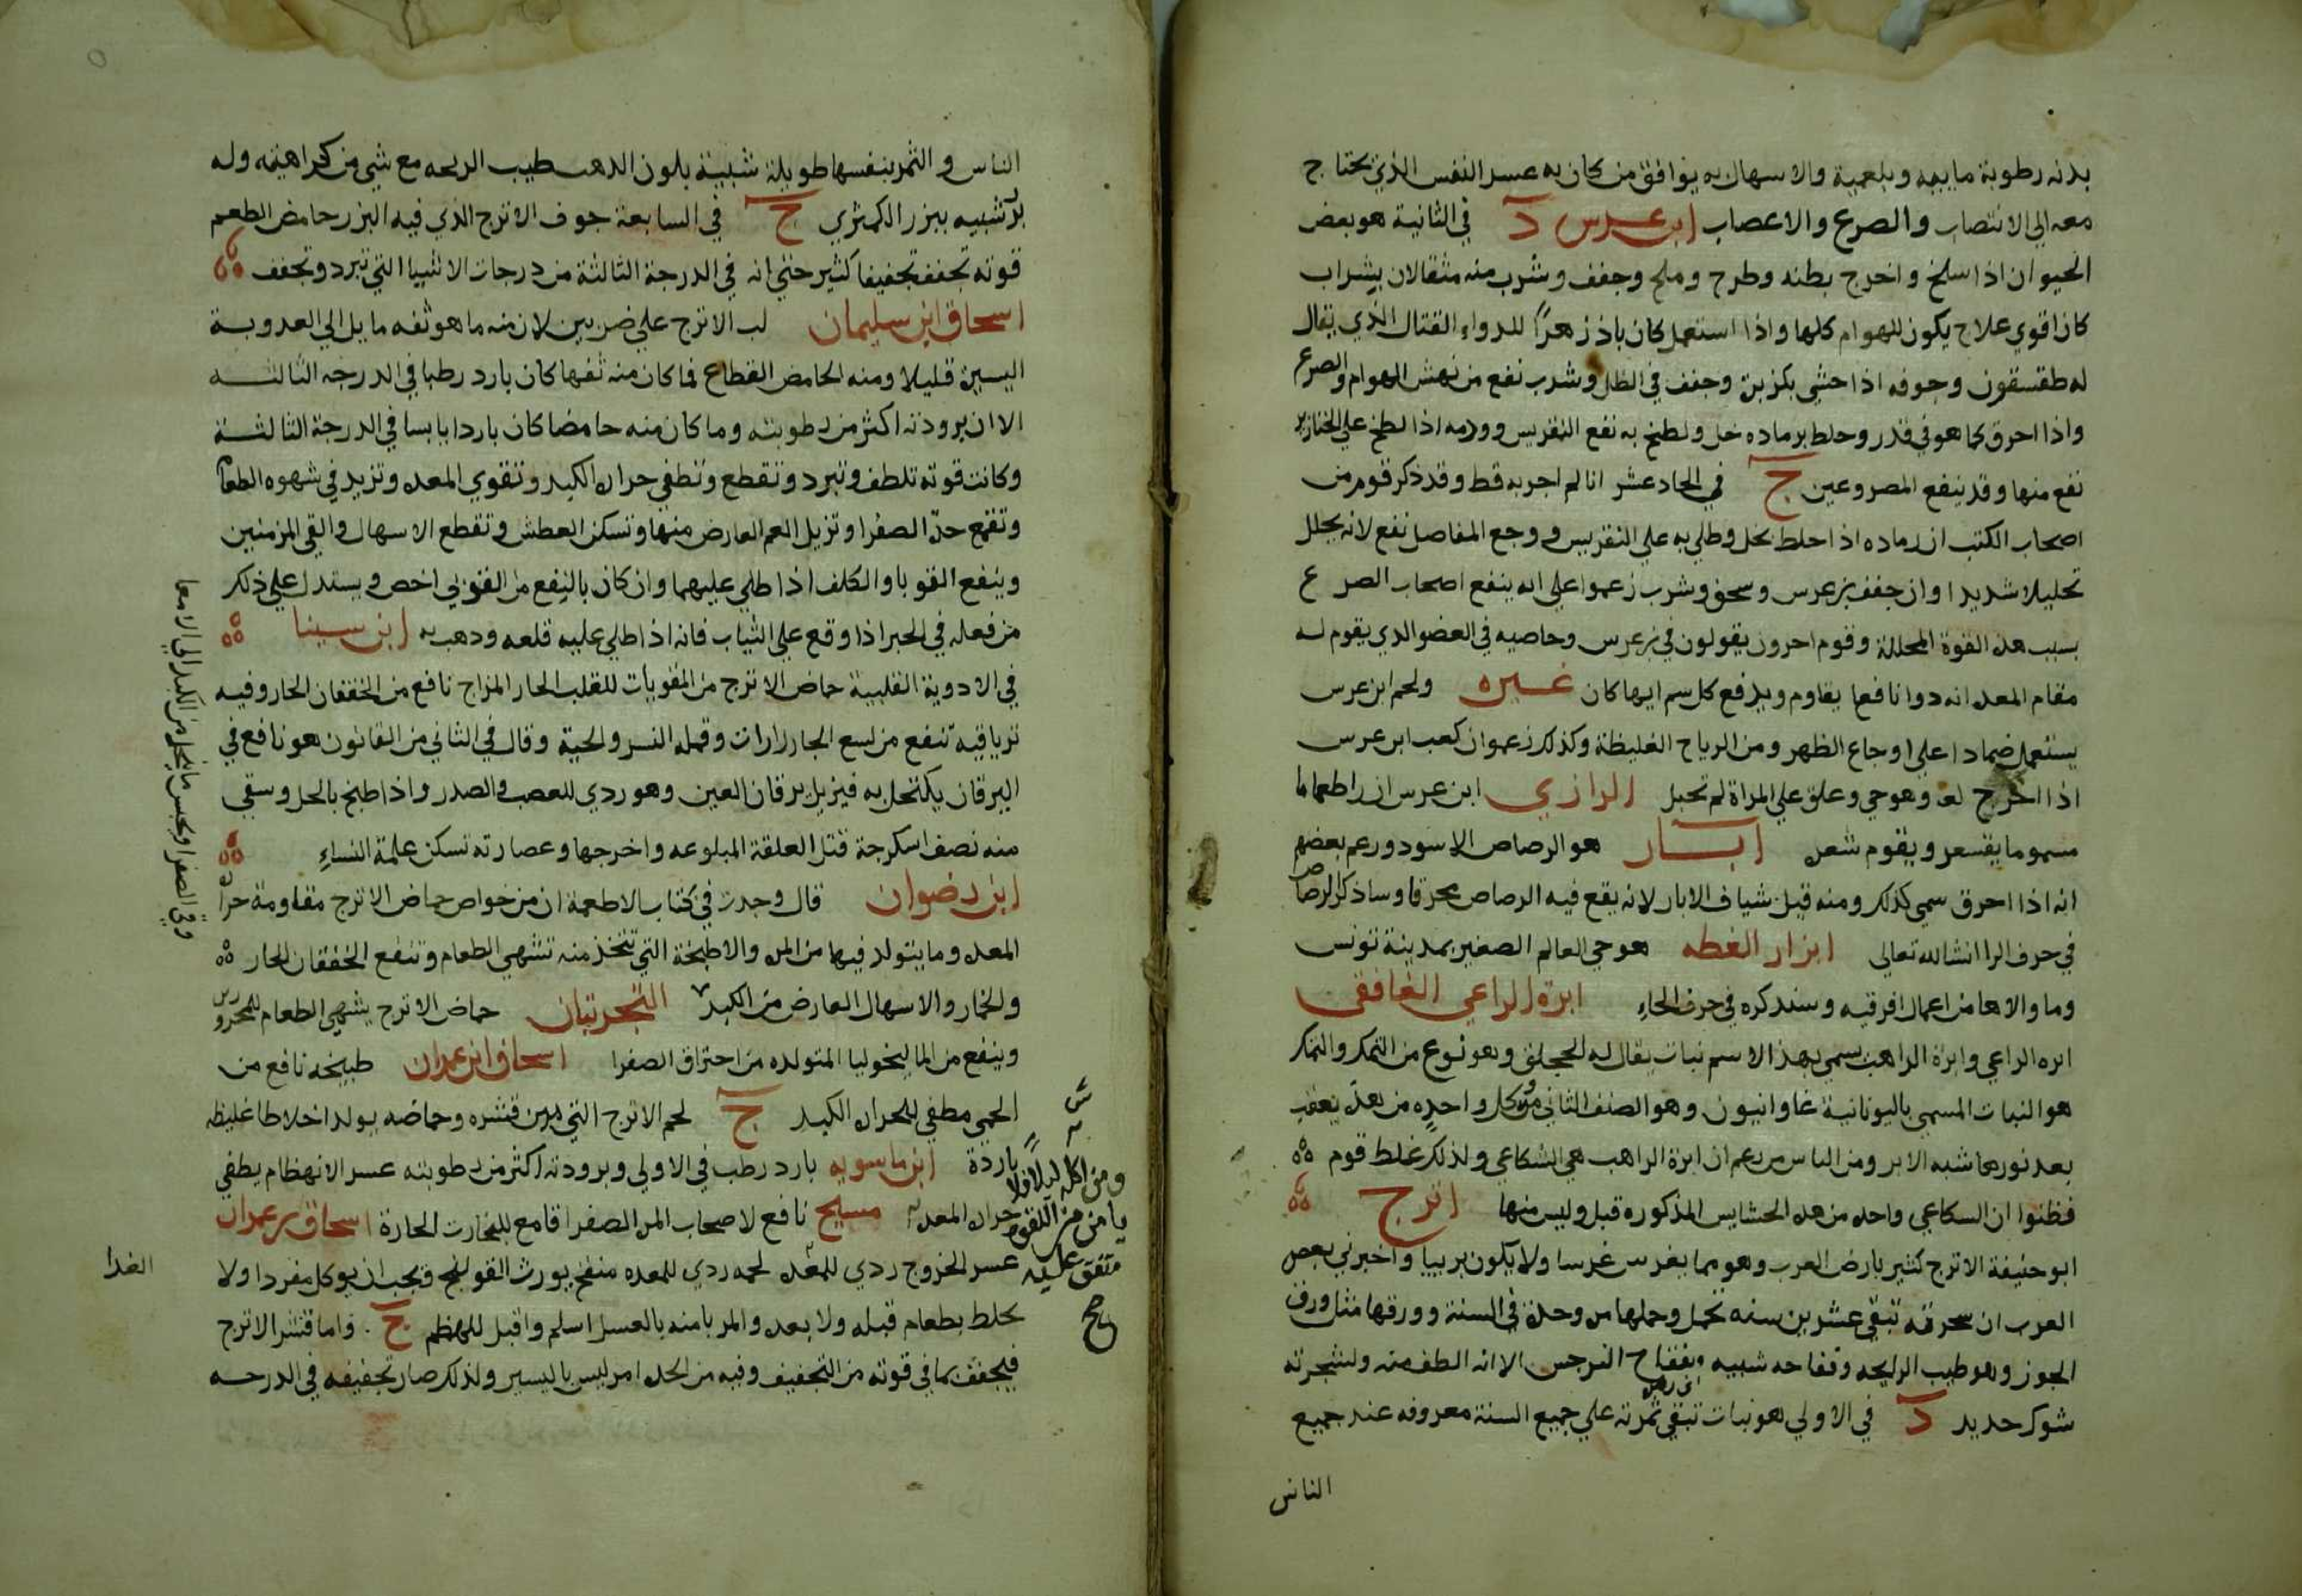 بدنه رطوبة مايية وبلغمية والاسهال به يوافق من كان به عسر النفس الذي يحتاج
معه الي الانتصاب والصرع والاعصاب ابن عرس د في الثانية هو بعض
الحيوان اذا سلخ واخرج بطنه وطرح وملح وجفف وشرب منه مثقالان بشراب
كان اقوي علاج يكون للهوام كلها واذا استعمل كان باذزهرًا للدواء القتال الذي يقال
له طقسقون وجوفه اذا حشي بكزبرة وجفف في الظل وشرب نفع من نهش الهوام والصرع
واذا احرق كما هو في قدر وخلط برماده خل ولطخ به نفع النقريس وودمه اذا لطخ علي الخنازير
نفع منها وقد ينفع المصروعين ج في الحاد عشر انا لم اجربه قط وقد ذكر قوم من
اصحاب الكتب ان رماده اذا خلط بخل وطلي به علي النقريس ووجع المفاصل نفع لانه يحلل
تحليلا شديدا وان جفف بن عرس وسحق وشرب زعموا علي انه ينفع اصحاب الصرع
بسبب هذه القوة المحللة وقوم اخرون يقولون في بن عرس وخاصيه في العضو الذي يقوم له
مقام المعده انه دوا نافعا يقاوم ويدفع كل سم ايها كان غيره ولحم ابن عرس
يستعمل ضمادا علي اوجاع الظهر ومن الرياح الغليظة وكذلك زعموا ان كعب ابن عرس
اذا اخرج له وهو حي وعلق علي المراة لم تحبل الرازي ابن عرس ان راطعاما
مسموما يقسعر ويقوم شعره ابار هو الرصاص الاسود وزعم بعضهم
انه اذا احرق سمي كذلك ومنه قيل شياف الابار لانه يقع فيه الرصاص محرقا وساذكر الرصاص
في حرف الرا انشالله تعالي ابزار القطه هو حي العالم الصغير بمدينة تونس
وما والاها من اعمال افرقيه وسنذكره في حرف الحاء ابرة الراعي الغافقي
ابره الراعي وابرة الراهب سمي بهذا الاسم نبات يقال له الججلق وهو نوع من التمك والتمك
هو النبات المسمي باليونانية غاوانيون وهو الصنف الثاني منه وكل واحده من بعد يعقب
بعد نورها شبه الابر ومن الناس من زعم ان ابرة الراهب هي الشكاعي ولذلك غلط قوم
فظنوا ان السكاعي واحده من هده الحشايس المذكوره قبل وليس منها اترج
ابو حنيفة الاترج كثير بارض العرب وهو مما يغرس غرسا ولا يكون بريا واخبرني بعض
العرب ان سجرته تبقي عشرين سنه تحمل وحملها مره وحدة في السنة وورقها مثل ورق
الجوز وهو طيب الرايحه وفقاحه شبيه بفقاح النرجس الا انه الطف منه ولشجرته
شوك حديد د في الاولي هو نبات تبقي ثمرته علي جميع السنة معروفه عند جميع
الناس
الناس والثمر بنفسها طويلة شبيهة بلون الدهب طيب الريحه مع شي من كراهيته وله
بزر شبيه ببزر الكمثري ج في السابعة جوف الاترج الذي فيه البزر حامض الطعم
قوته تجفف تجفيفا كثير حتي انه في الدرجة الثالثة من درجات الاشيا التي تبرد وتجفف
اسحاق ابن سليمان لب الاترج علي ضربين لان منه ما هو تفه مايل الي العدوبة
اليسيرة قليلا ومنه الحامض القطاع فما كان منه تفها كان بارد رطبا في الدرجه الثالثه
الا ان برودته اكثر من رطوبته وما كان منه حامضا كان باردا يابسا في الدرجة الثالثة
وكانت قوته تلطف وتبرد وتقطع وتطفي حراره الكبد وتقوي المعده وتزيد في شهوه الطعام
وتقمع حدّة الصفرا وتزيل الغم العارض منها وتسكن العطش وتقطع الاسهال والقي المزمنين
وينفع القوبا والكلف اذا طلي عليهما وان كان بالنفع من القوبي اخص ويستدل علي ذلك
من فعله في الحبر اذا وقع علي الثياب فانه اذا طلي عليه قلعه ودهب به ابن سينا
في الادوية القلبية حماض الاترج من المقويات للقلب الحار المزاج نافع من الخفقان الحار وفيه
ترياقية تنفع من لسع الجارارات وقمله النسر والحية وقال في الثاني من القانون هو نافع في
اليرقان يكتحل به فيزيل يرقان العين وهو ردي للعصب والصدر واذا طبخ بالخل وسقي
منه نصف اسكرجة قتل العلقة المبلوعه واخرجها وعصارته تسكن غلمة النساء
ابن رضوان قال وجدت في كتاب الاطعمة ان من خواص حماض الاترج مقاومة حرارة
المعده وما يتولد فيها من المره والاطبخة التي تتخذ منه تشهي الطعام وتنفع الخفقان الحار
والخمار والاسهال العارض من الكبد التجربتان حماض الاترج يشهي الطعام للمحرورين
وينفع من الماليخوليا المتولده من احتراق الصفرا اسحاق ابن عمران طبيخه نافع من
الحمي مطفي للحراره الكبد ج لحم الاترج التي بين قشره وحماضه يولد اخلاطا غليظه
باردة ابن ماسويه بارد رطب في الاولي وبرودته اكثر من رطوبته عسر الانهظام يطفي
حراره المعده مسيح نافع لاصحاب المره الصفرا قامع للبخارت الحارة اسحاق بن عمران
عسر الخروج ردي للمعده لحمه ردي للمعده منفخ يورث القولنج ويجب ان يوكل مفردا ولا
يخلط بطعام قبله ولا بعده والمربا منه بالعسل اسلم واقبل للهظم ج واما قشر الاترج
فيجفف بما في قوته من التجفيف وفيه من الحده امر ليس باليسير ولذلك صار تجفيفه في الدرجه
ومن اكله ليلًا
متفق عليه
صح
الغدا